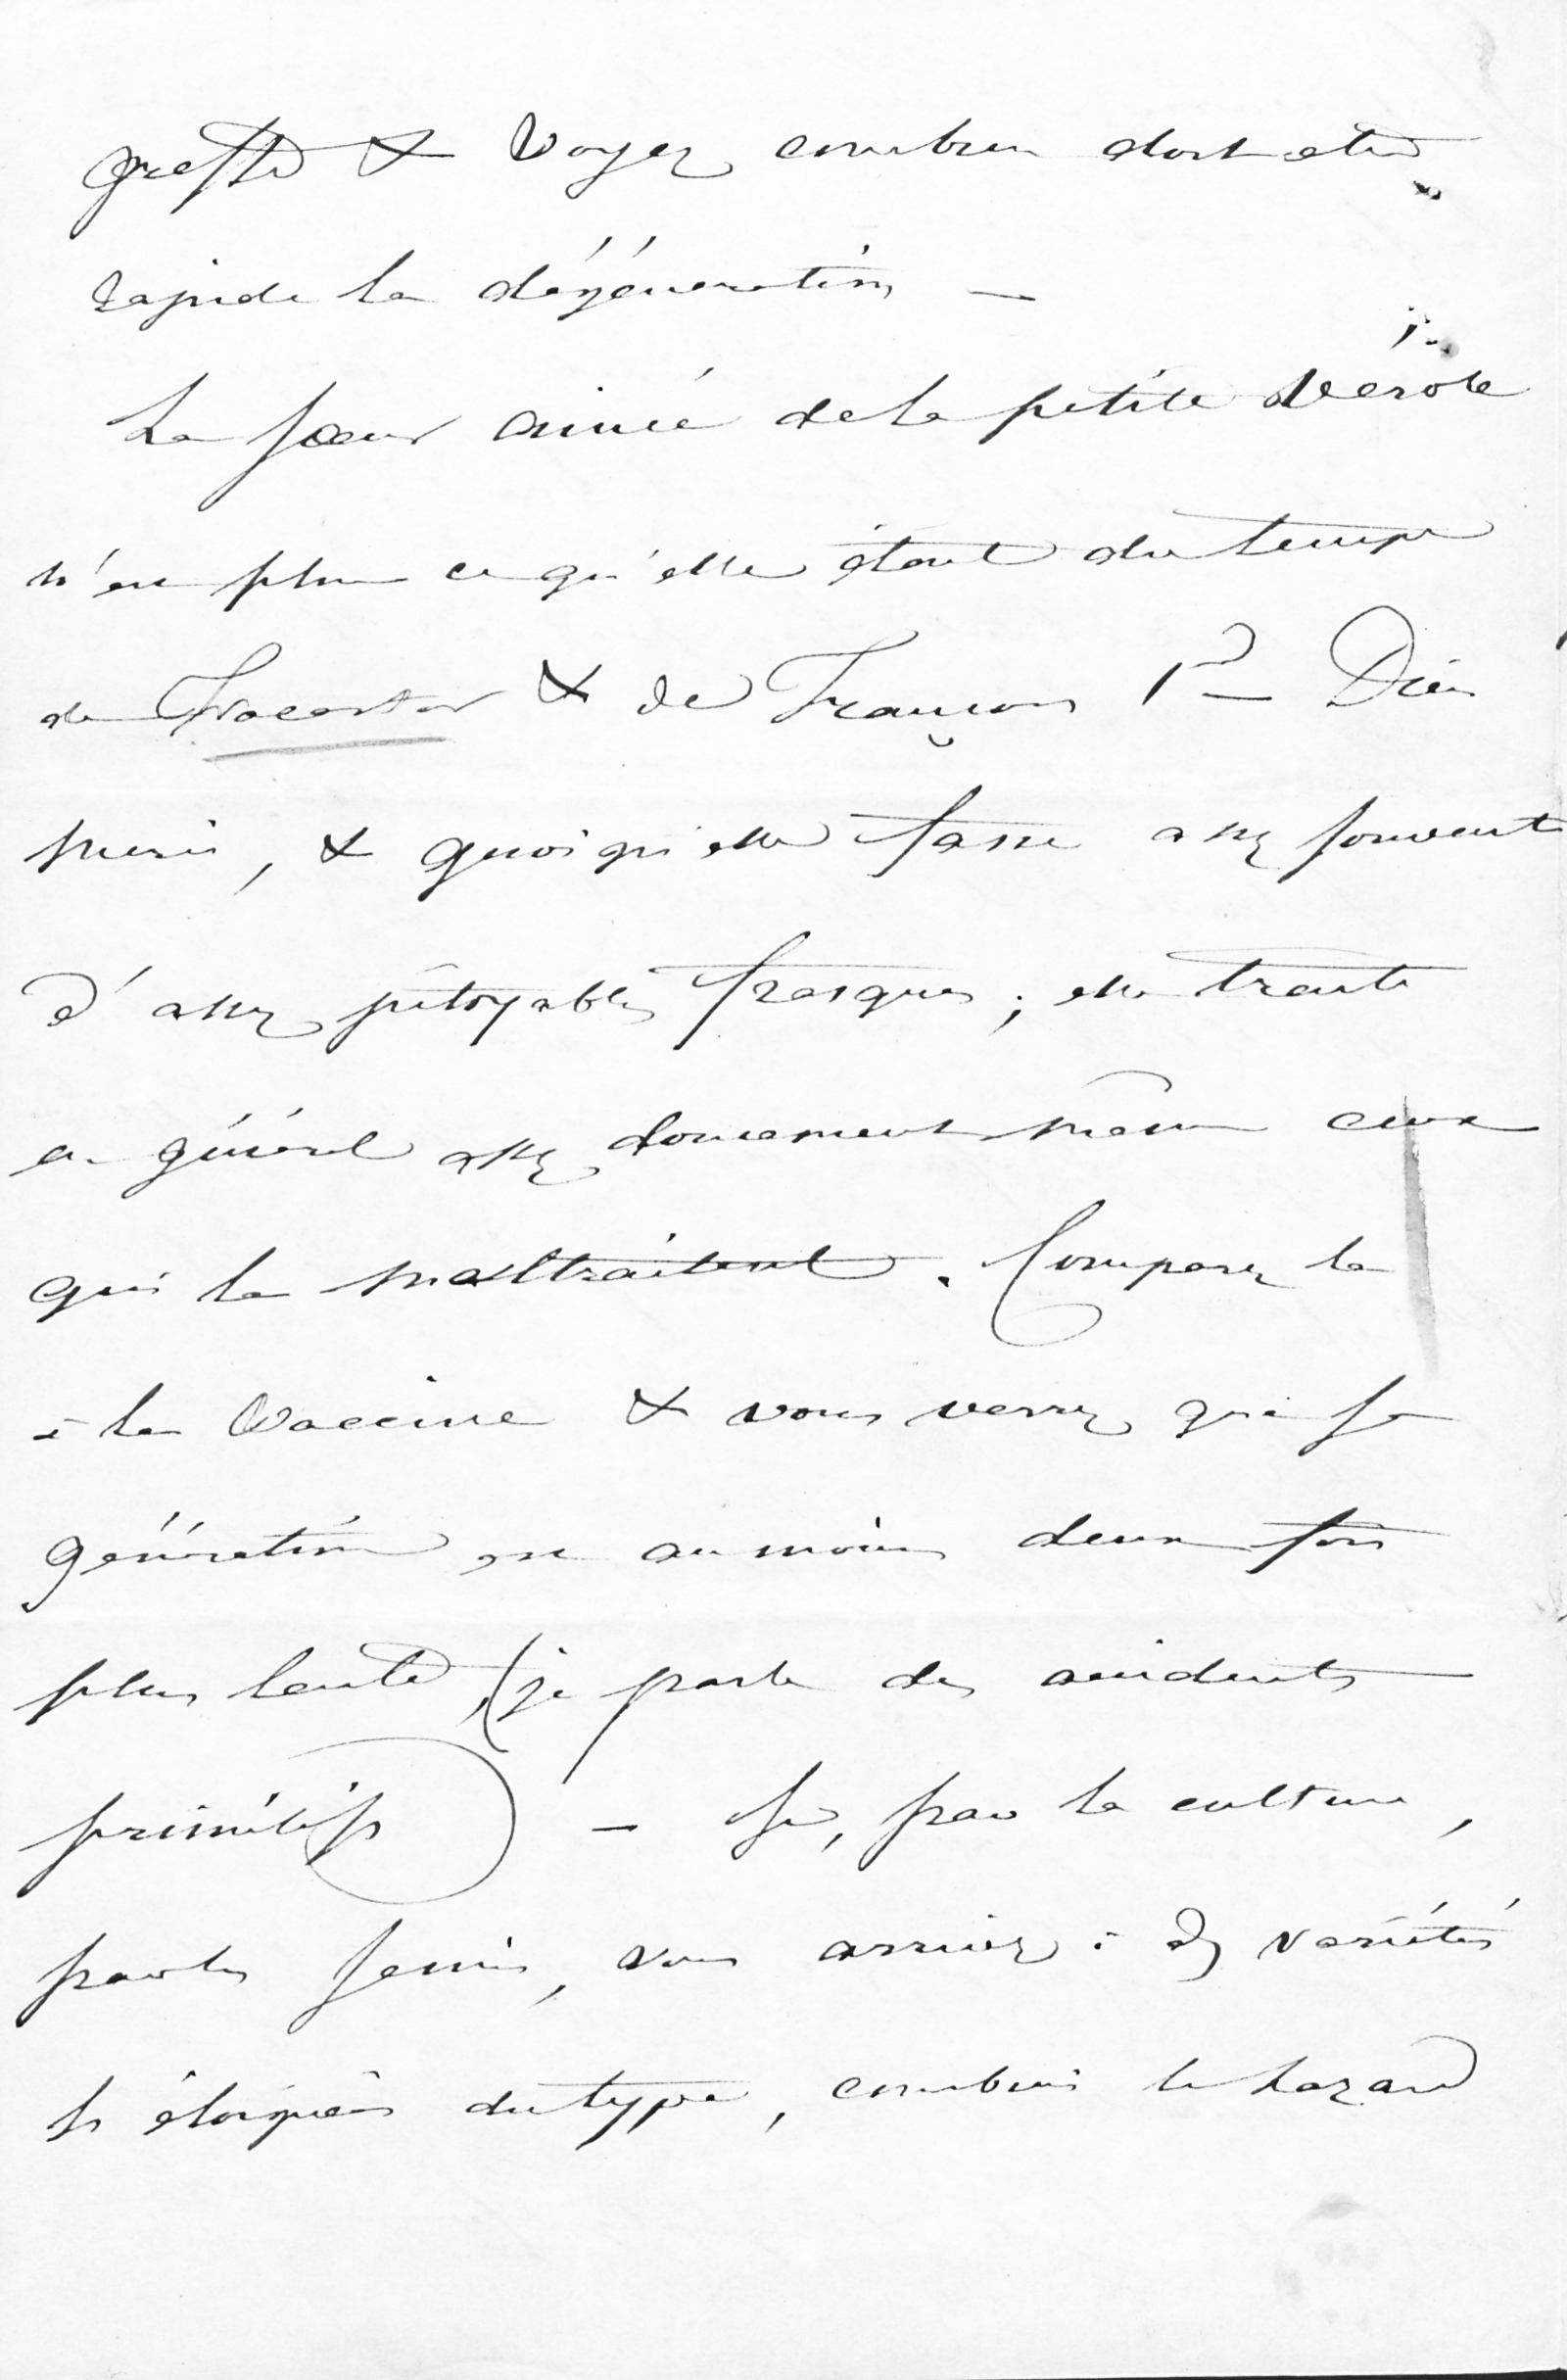 greffe & voyez combien doit etre
rapide la dégéneration —
La sœur ainée de la petite vérole
n'est plus ce qu'elle était du temps
de Fracastor & de François 1er Dieu
merci, & quoiqu'elle fasse assez souvent
d'assez pitoyables frasques ; elle traite
en général assez doucement même ceux
qui la maltraitent. Comparez la
à la Vaccine & vous verrez que sa
géneration est au moins deux fois
plus lente, (je parle des accidents
primitifs) — Si, par la culture,
par les semis, vous arrivez à des variétés
si éloignées du type, combien le hazard